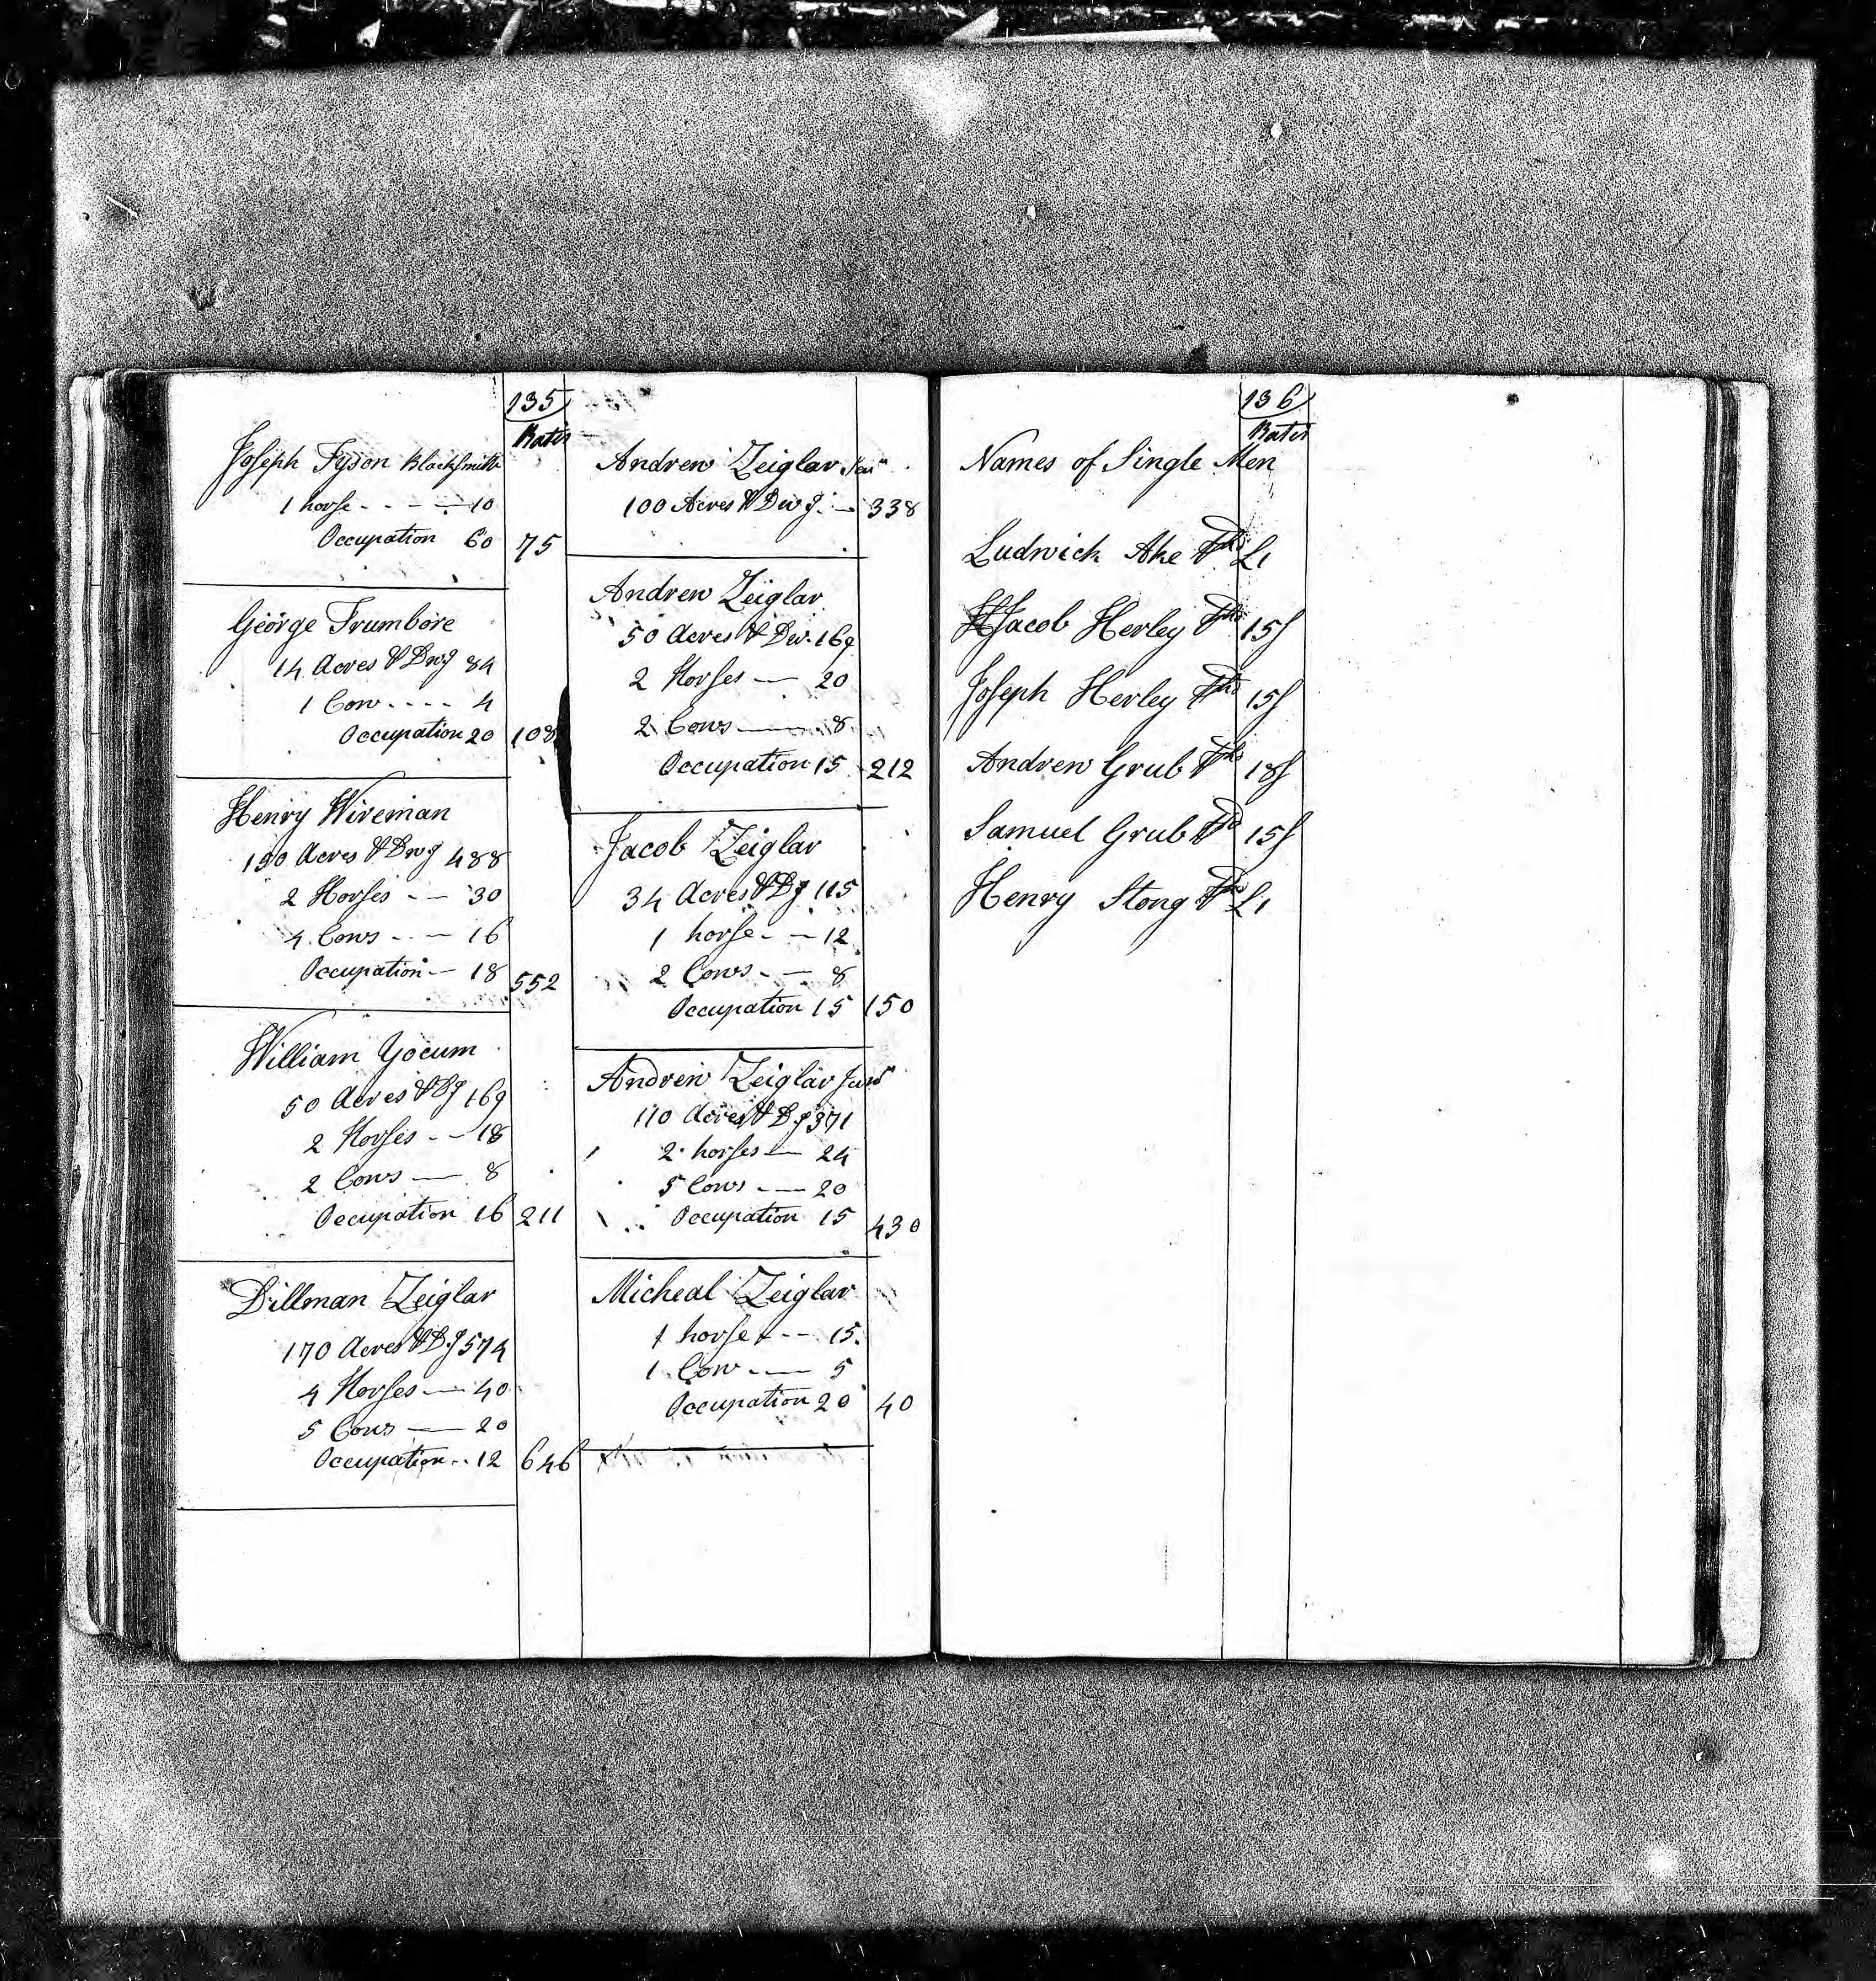 135
Rates
Joseph Tyson Blacksmith
1 horse - - - - 10
Occupation 60 75
George Trumbore
14 Acres & Dwg 84
1 Cow - - - - 4
Occupation 20 108
Henry Wireman
150 Acres & Dwg 488
2 Horses - - 30
4 Cows - - - 16
Occupation - 18 552
William Yocum
50 Acres & Dg 169
2 Horses - - 18
2 Cows - 8
Occupation 16 211
Dillman Zeiglar
170 Acres & Dg 574
4 Horses - 40
5 Cows - 20
Occupation - - 12 646
Andrew Zeiglar Senr
100 Acres & Dwg - 338
Andrew Zeiglar
50 Acres & Dw. 169
2 Horses - 20
2 Cows - 8
Occupation 15 212
Jacob Zeiglar
34 Acres & Dg 115
1 horse - - 12
2 Cows - - 8
Occupation 15 150
Andrew Zeiglar Junr
110 Acres & Dg 371
2 horses - 24
5 Cows - 20
Occupation 15 430
Micheal Zeiglar
1 horse - - 15
1 Cow - 5
Occupation 20 40
136
Rates
Names of Single Men
Ludwick Ake £1
Jacob Herley 15s
Joseph Herley 15s
Andrew Grub 18s
Samuel Grub 15s
Henry Stong £1